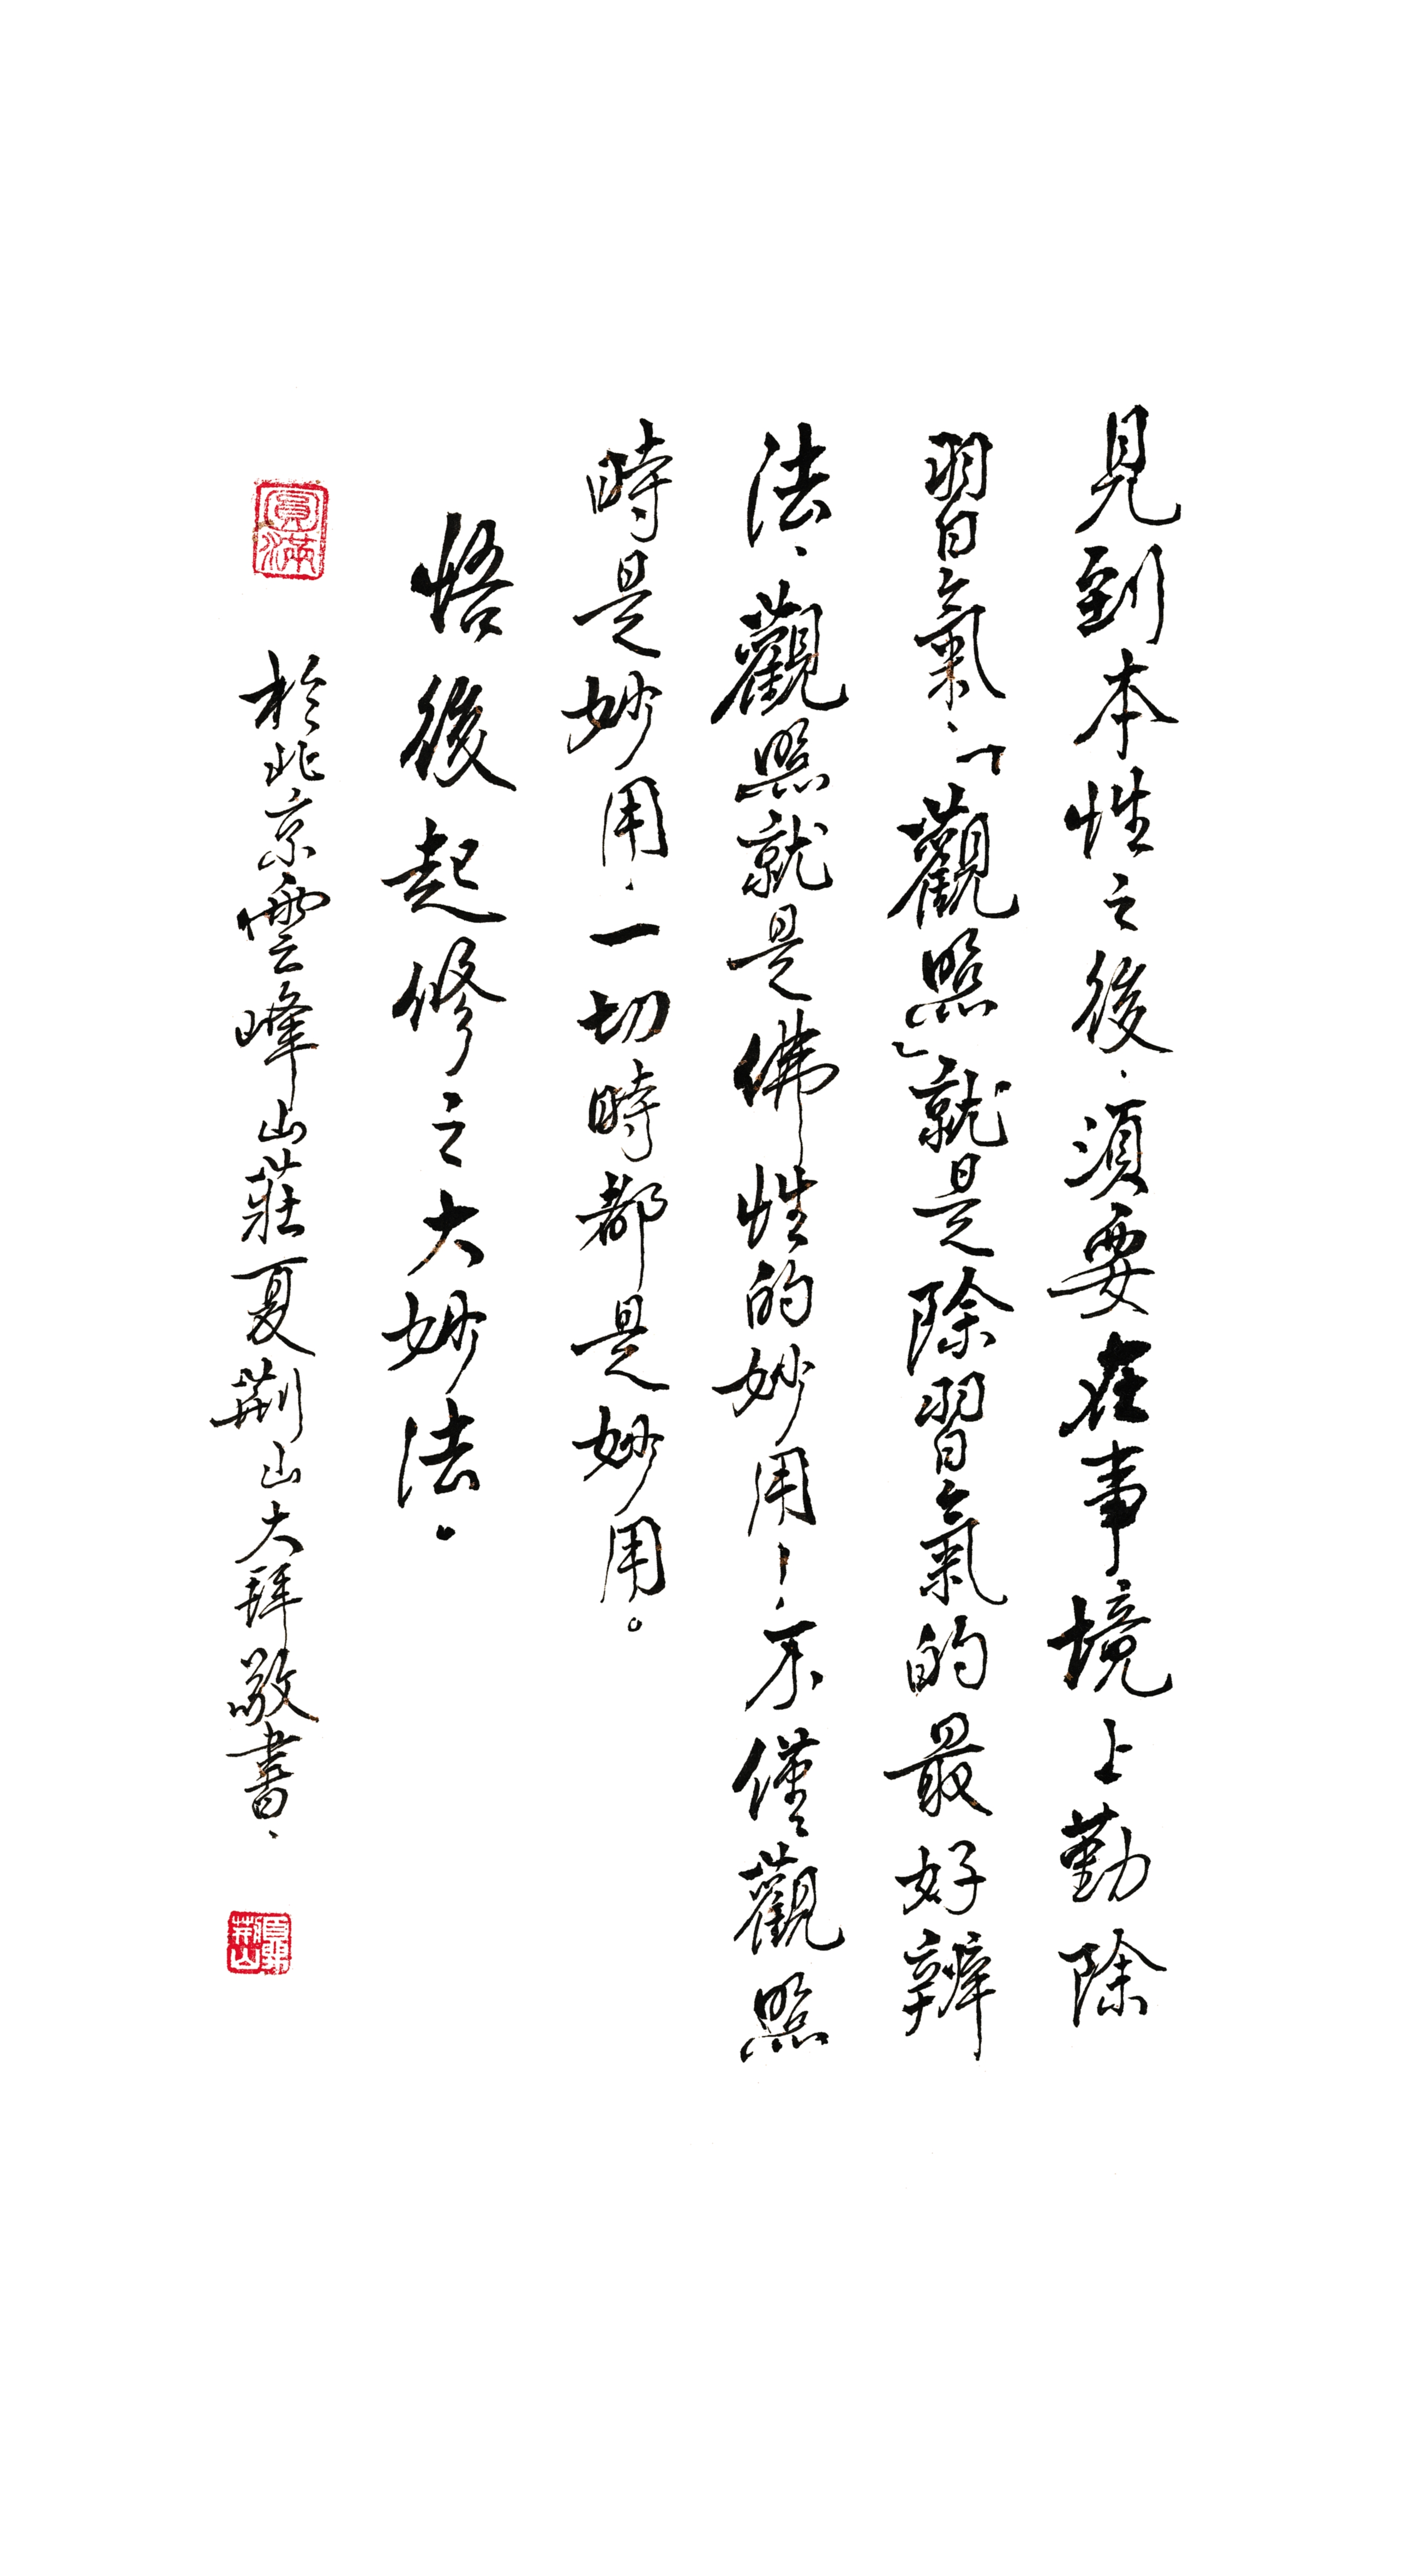 見到本性之後、須要在事境上勤除
習氣、「觀照」就是除習氣的最好辦
法、觀照就是佛性的妙用！不僅觀照
時是妙用、一切時都是妙用。
悟後起修之大妙法。
圓滿
於北京雲峰山莊夏荊山大拜敬書、
夏荊山